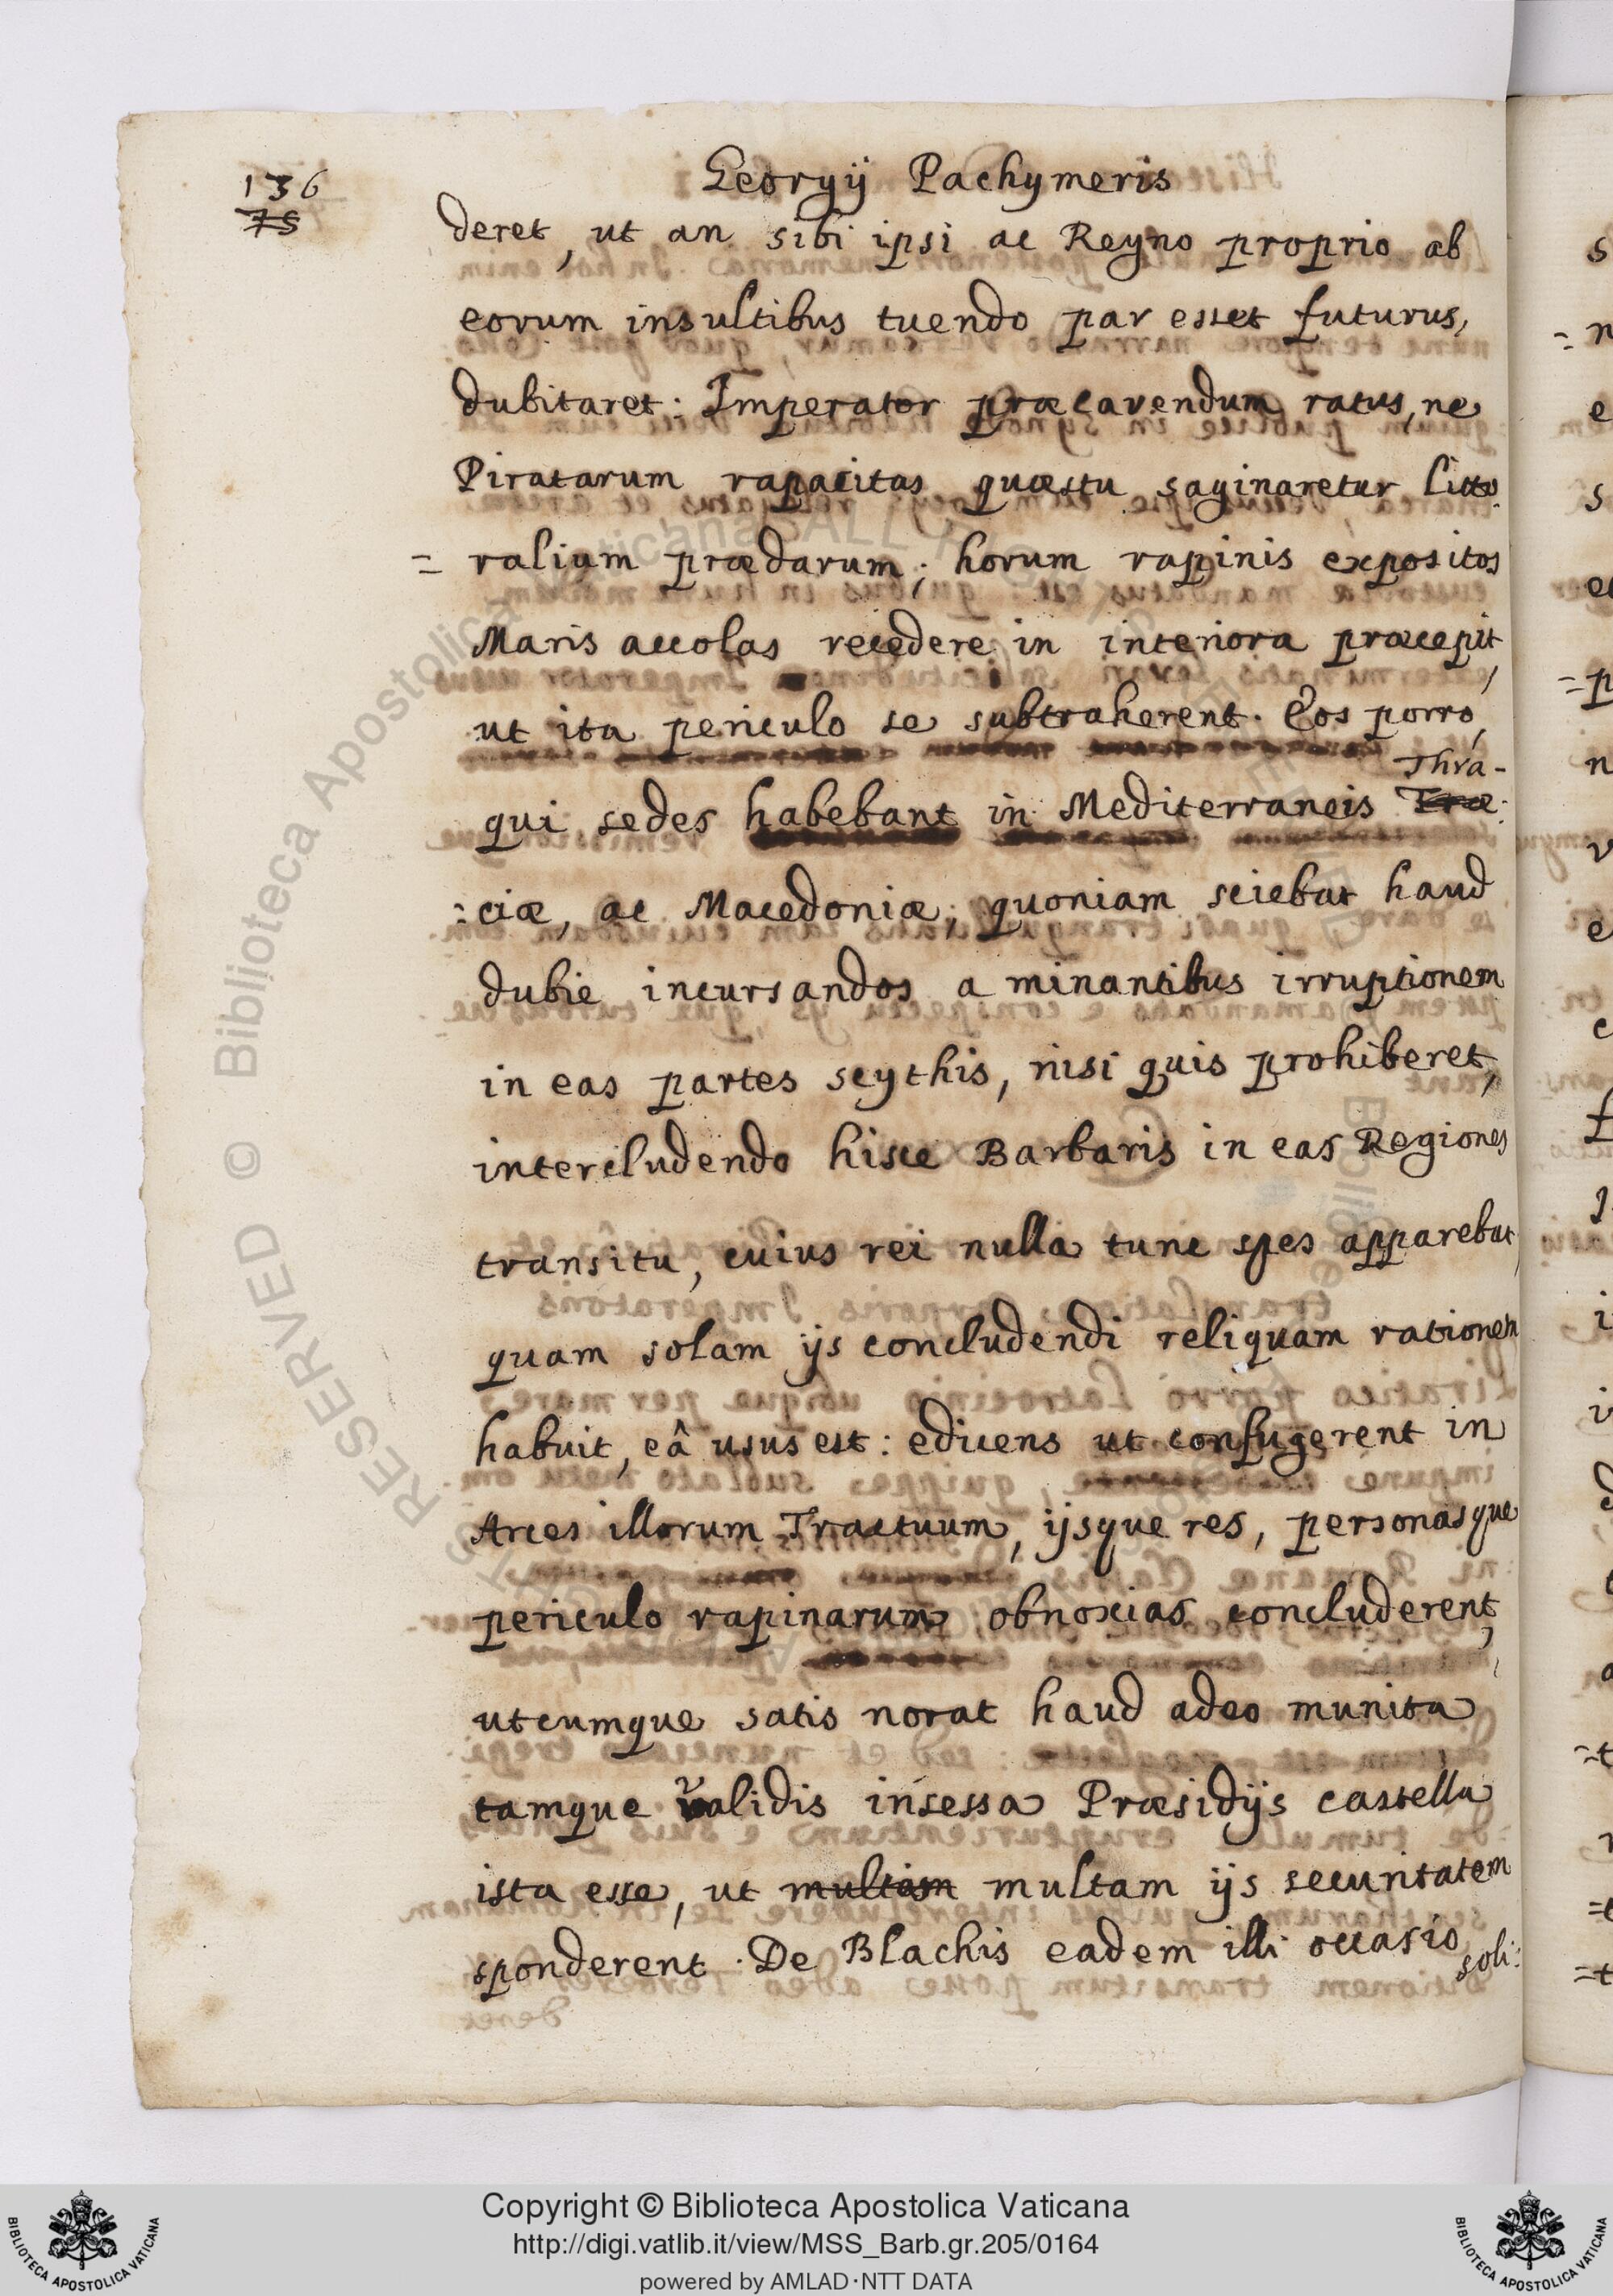 136
75
Georgij Pachymeris
deret, ut an sibi ipsi ac Regno proprio ab
eorum insultibus tuendo par esset futurus,
dubitaret: Imperator præcavendum ratus, ne
Piratarum rapacitas quæstu saginaretur Litto
= ralium prædarum; horum rapinis expositos
Maris accolas recedere in interiora præcepit,
ut ita periculo se subtraherent. Eos porro,
Thra-
qui sedes habebant in Mediterraneis Træ:
=ciæ, ac Macedoniæ; quoniam sciebat haud
dubie incursandos a minantibus irruptionem
in eas partes scythis, nisi quis prohiberet,
intercludendo hisce Barbaris in eas Regiones
transitu, cuius rei nulla tunc spes apparebat,
quam solam ijs concludendi reliquam rationem
habuit, eâ usus est: edicens ut confugerent in
Arces illorum Tractuum, ijsque res, personasque
periculo rapinarum obnoxias concluderent,
utcumque satis norat haud adeo munita
tamque validis insessa Præsidijs castella
ista esse, ut multam multam ijs securitatem
sponderent. De Blachis eadem illi occasio
soli:
Copyright © Biblioteca Apostolica Vaticana
http://digi.vatlib.it/view/MSS_Barb.gr.205/0164
powered by AMLAD·NTT DATA
BIBLIOTECA APOSTOLICA VATICANA
BIBLIOTECA APOSTOLICA VATICANA